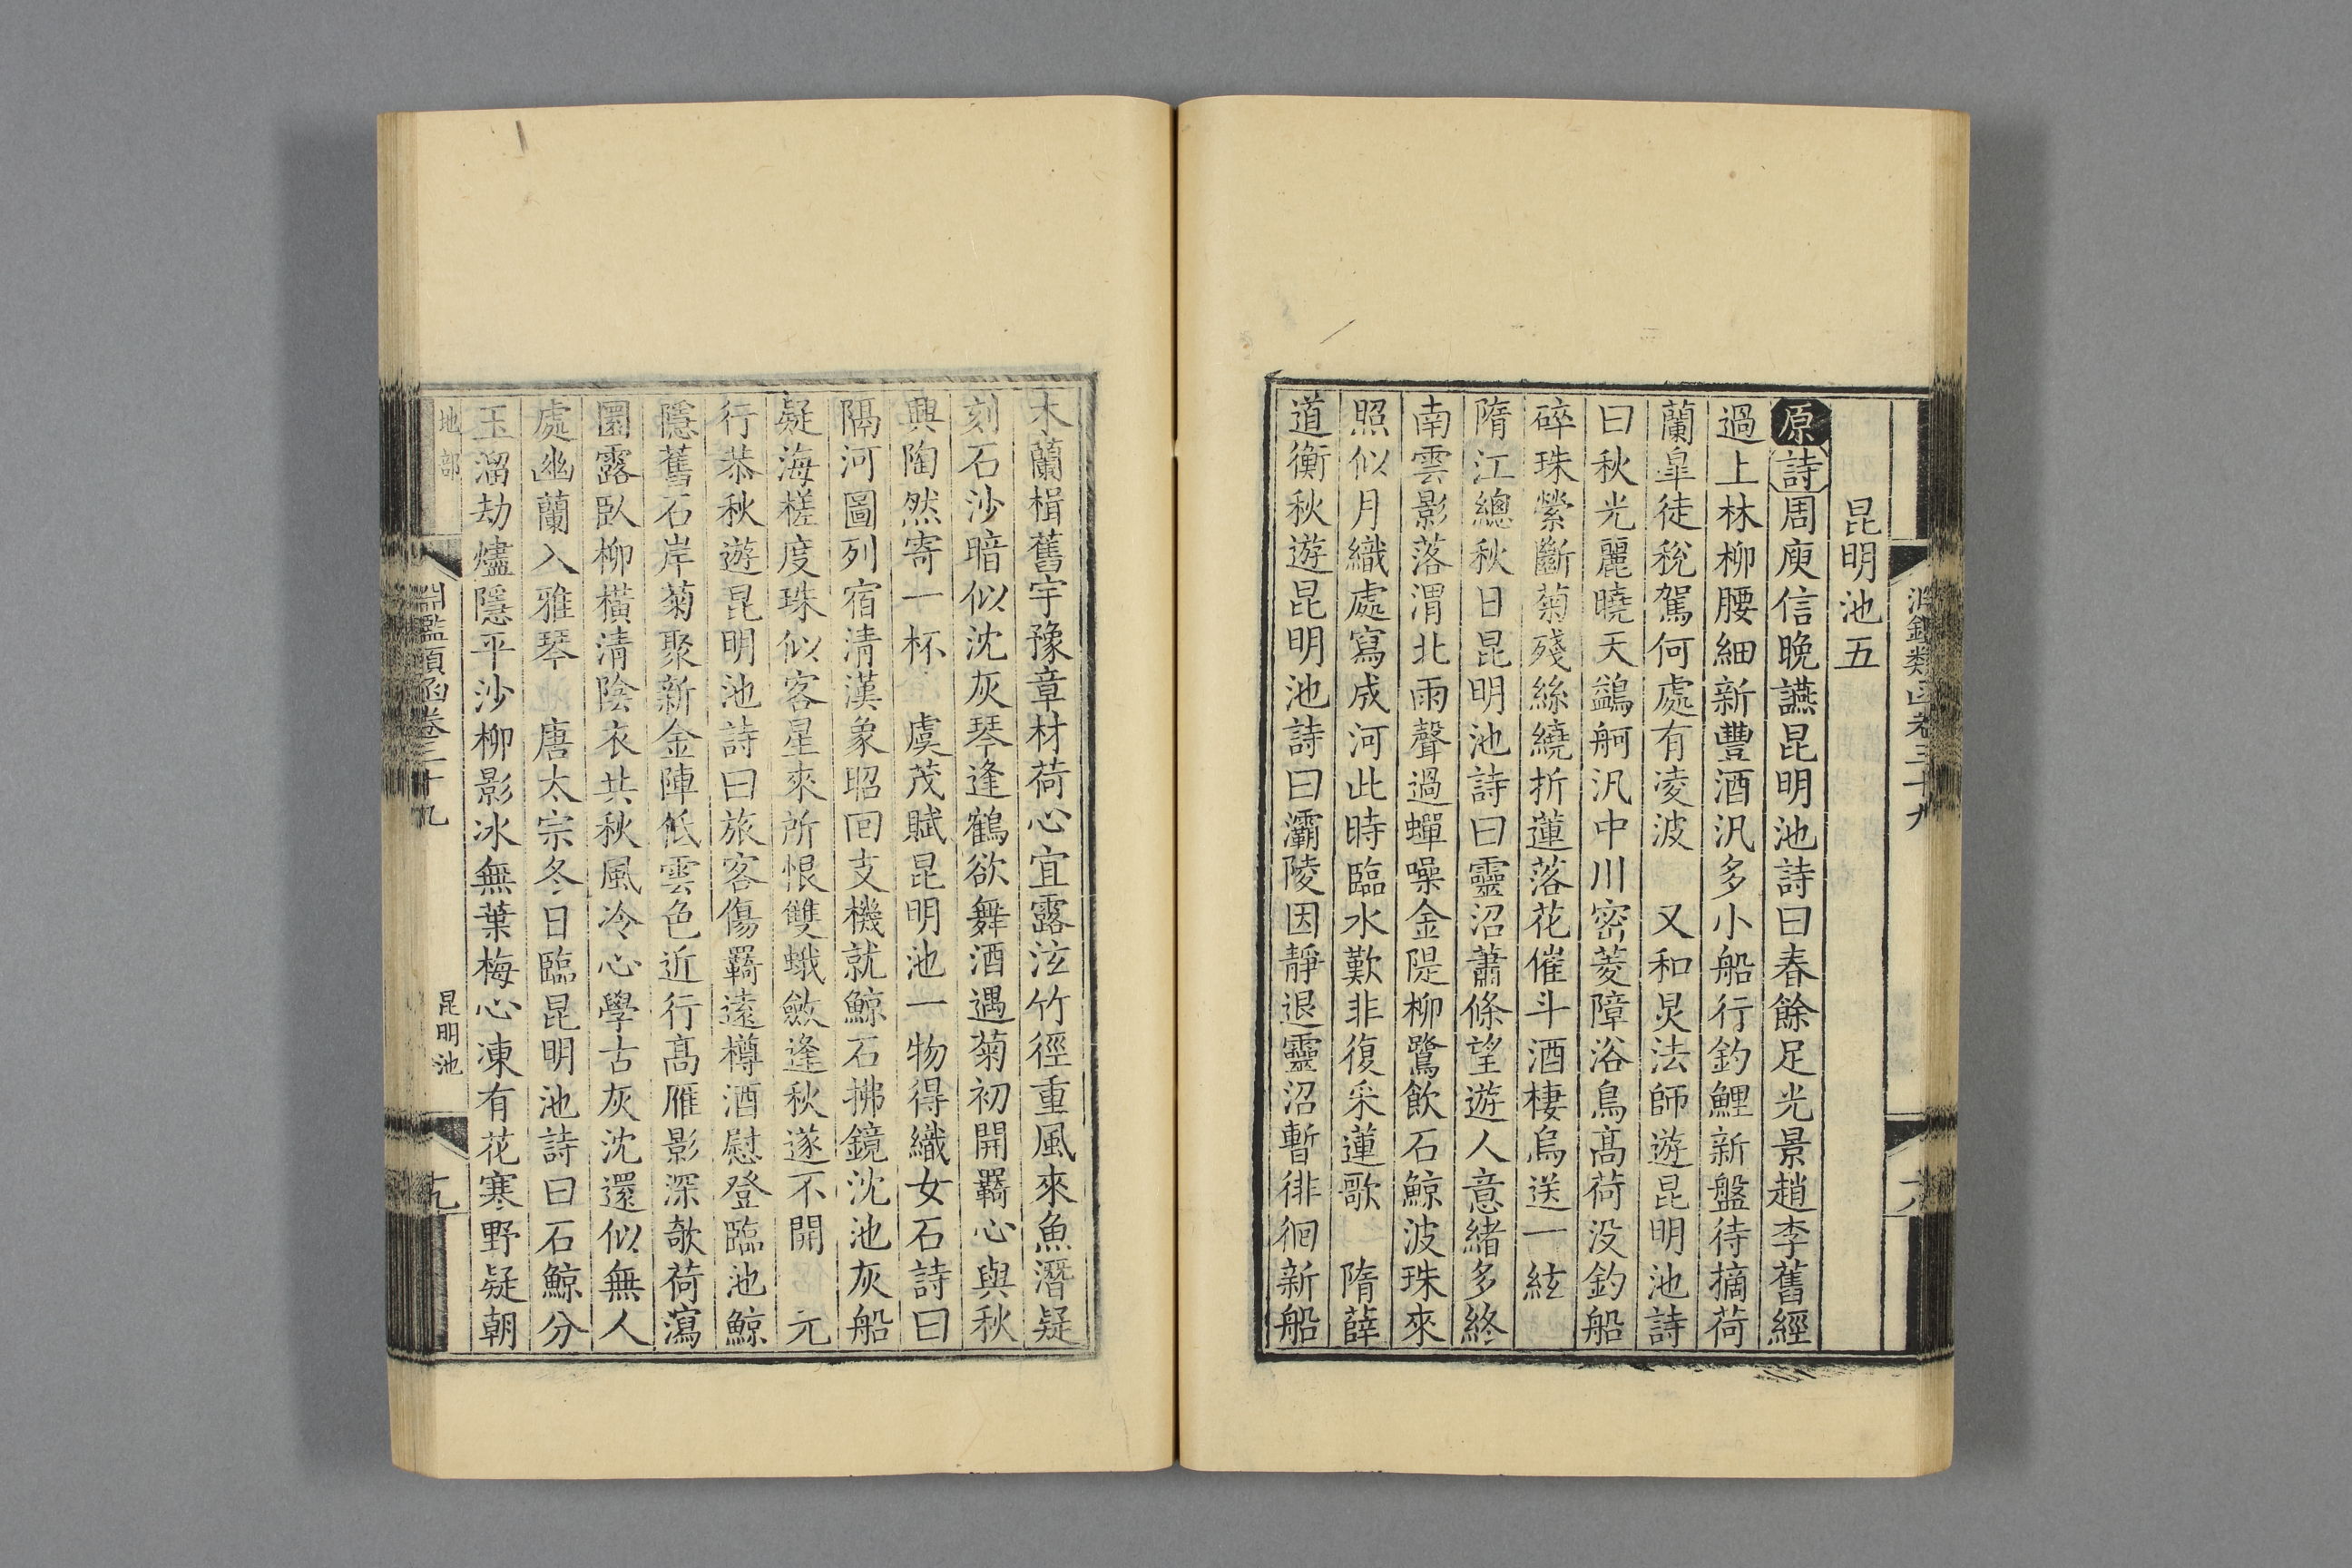 昆明池五
原詩周庾信晚讌昆明池詩曰春餘足光景趙李舊經
過上林柳腰細新豐酒汎多小船行釣鯉新盤待摘荷
蘭臯徒稅駕何處有凌波 又和炅法師遊昆明池詩
曰秋光麗曉天鷁舸汎中川密菱障浴鳥髙荷没釣船
碎珠縈斷菊殘絲繞折蓮落花催斗酒棲烏送一絃
隋江總秋日昆明池詩曰靈沼蕭條望遊人意緒多終
南雲影落渭北雨聲過蟬噪金隄柳鷺飲石鯨波珠來
照似月織處寫成河此時臨水歎非復采蓮歌 隋薛
道衡秋遊昆明池詩曰灞陵因靜退靈沼暫徘徊新船
木蘭楫舊宇豫章材荷心宜露泫竹徑重風來魚潛疑
刻石沙暗似沈灰琴逢鶴欲舞酒遇菊初開羇心與秋
興陶然寄一杯 虞茂賦昆明池一物得織女石詩曰
隔河圖列宿清漢象昭囘支機就鯨石拂鏡沈池灰船
疑海槎度珠似客星來所恨雙蛾斂逢秋遂不開 元
行恭秋遊昆明池詩曰旅客傷羇遠樽酒慰登臨池鯨
隱舊石岸菊聚新金陣低雲色近行髙雁影深欹荷瀉
圜露臥柳橫清陰衣共秋風冷心學古灰沈還似無人
處幽蘭入雅琴 唐太宗冬日臨昆明池詩曰石鯨分
玉溜劫燼隱平沙柳影冰無葉梅心凍有花寒野疑朝
地部
淵鑑類函卷三十九
昆明池